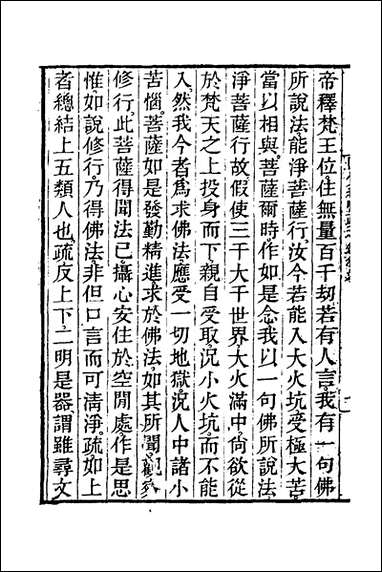 帝釋梵王位住無量百千劫若有人言我有一句佛
所說法能淨菩薩行汝今若能入大火坑受極大苦
當以相與菩薩爾時作如是念我以一句佛所說法
淨菩薩行故假使三千大千世界大火滿中尚欲從
於梵天之上投身而下親自受取況小火坑而不能
入然我今者為求佛法應受一切地獄況人中諸小
苦惱菩薩如是發勤精進求於佛法如其所聞觀察
修行此菩薩得聞法已攝心安住於空閒處作是思
惟如說修行乃得佛法非但口言而可清淨疏如上
者總結上五類人也疏反上下二明是器謂雖尋文